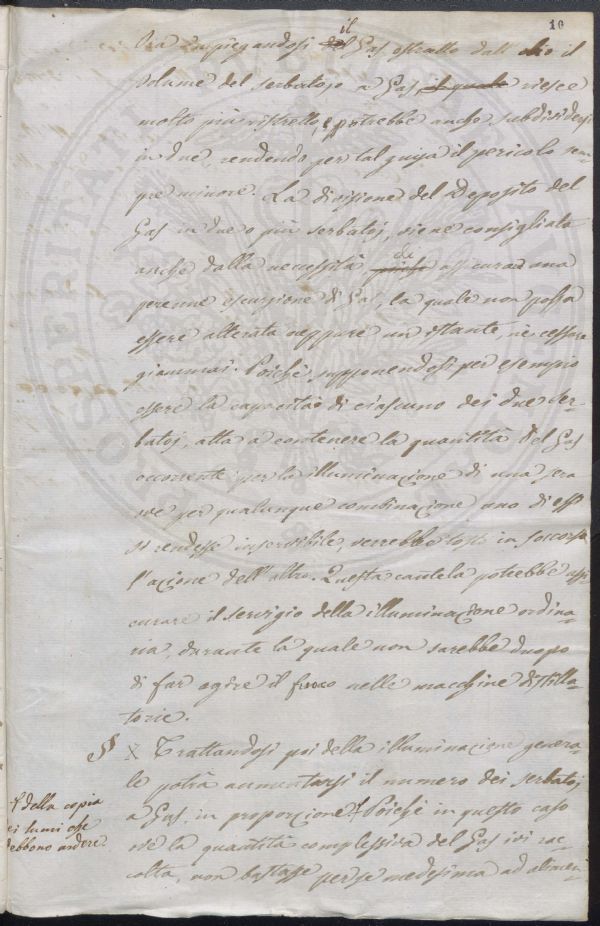 10
il
Ora impiegandosi del Gas estratto dall' olio il
volume del serbatojo a Gas, il quale riesce
molto più ristretto, e potrebbe anche suddividersi
in due, rendendo per tal guisa il pericolo sem-
pre minore. La divisione del Deposito del
Gas in due o più serbatoj, viene consigliata
di
anche dalla necessità assicurare una
perenne escursione di Gas, la quale non possa
essere alterata neppure un istante, nè cessare
giammai. Poichè, supponendosi per esempio
essere la capacità di ciascuno dei due ser-
batoj, atta a contenere la quantità del Gas
occorrente per la illuminazione di una sera
ove per qualunque combinazione uno di essi
si rendesse inservibile, verrebbe tosto in soccorso
l'azione dell'altro. Questa cautela potrebbe assi-
curare il servigio della illuminazione ordina-
ria, durante la quale non sarebbe duopo
di far agire il fuoco nelle macchine distilla-
torie.
§§ X Trattandosi poi della illuminazione genera-
le potrà aumentarsi il numero dei serbatoj
a Gas, in proporzione Poichè in questo caso
ove la quantità complessiva del Gas ivi rac-
colta, non bastasse per se medesima ad alimen-
della copia
dei lumi che
debbono ardere.